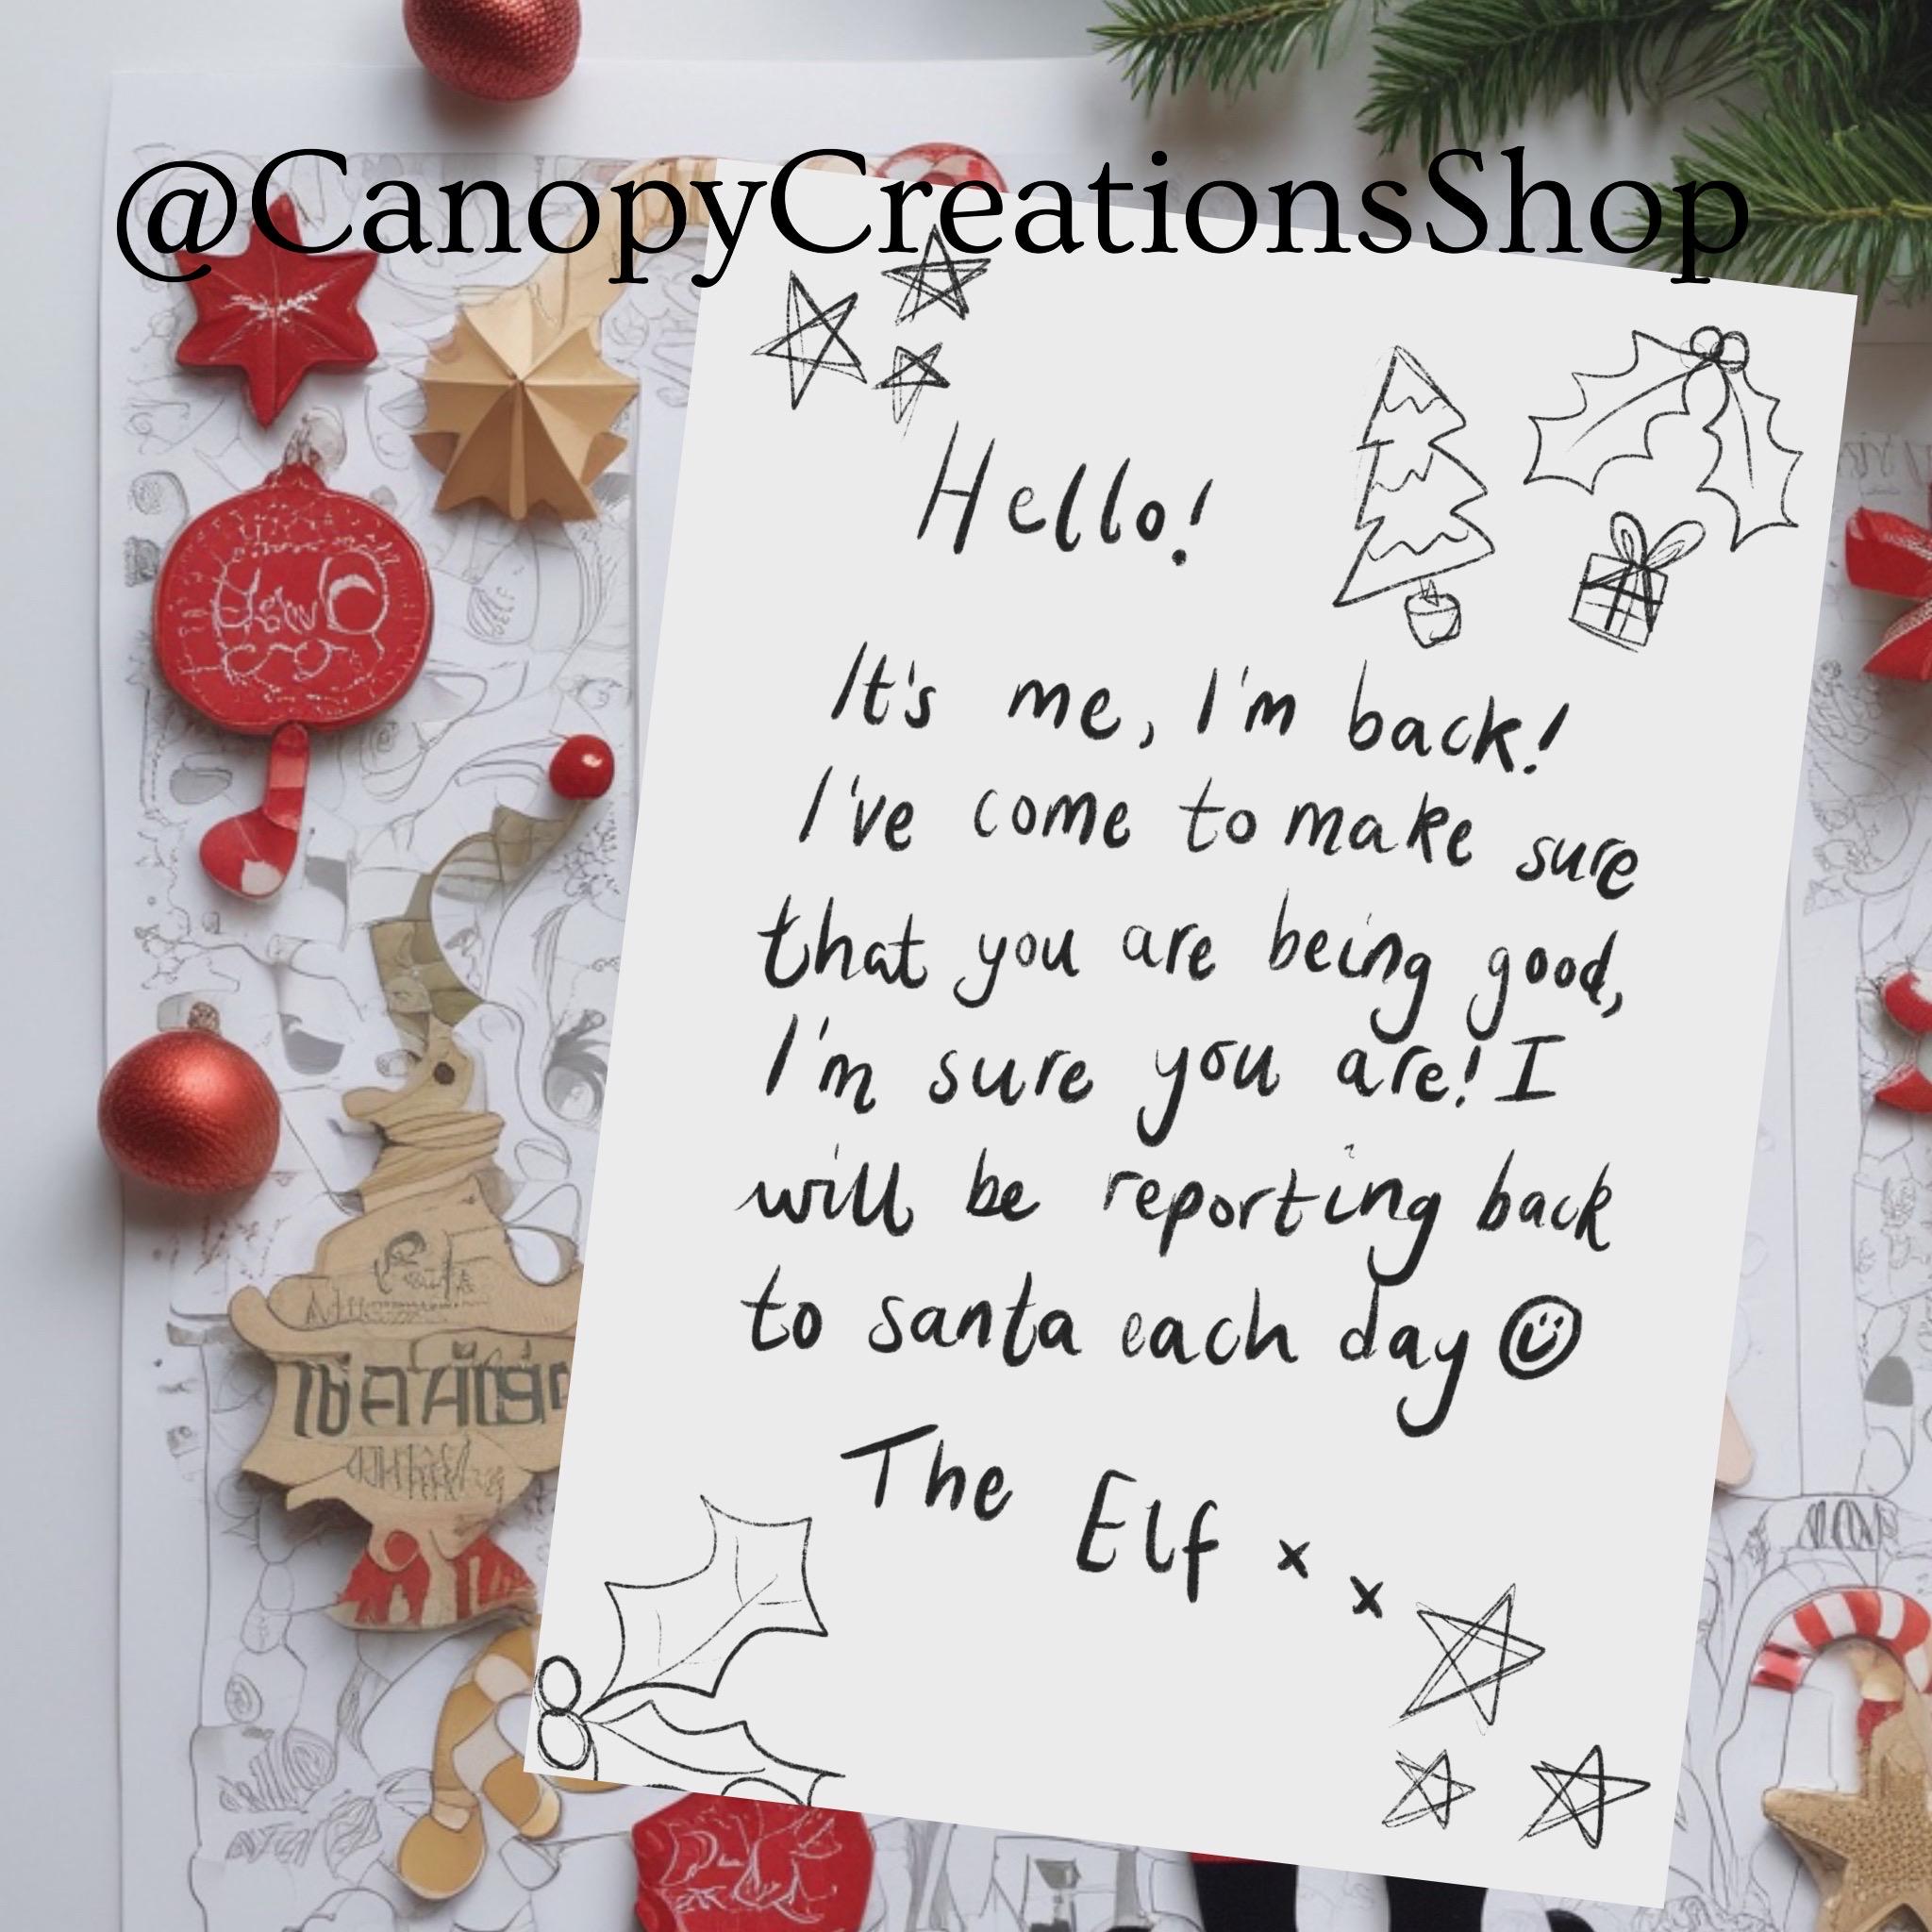 @CanopyCreationsShop
Hello!
It's me, I'm back!
I've come to make sure
that you are being good,
I'm sure you are! I
will be reporting back
to santa each day
The Elf x x